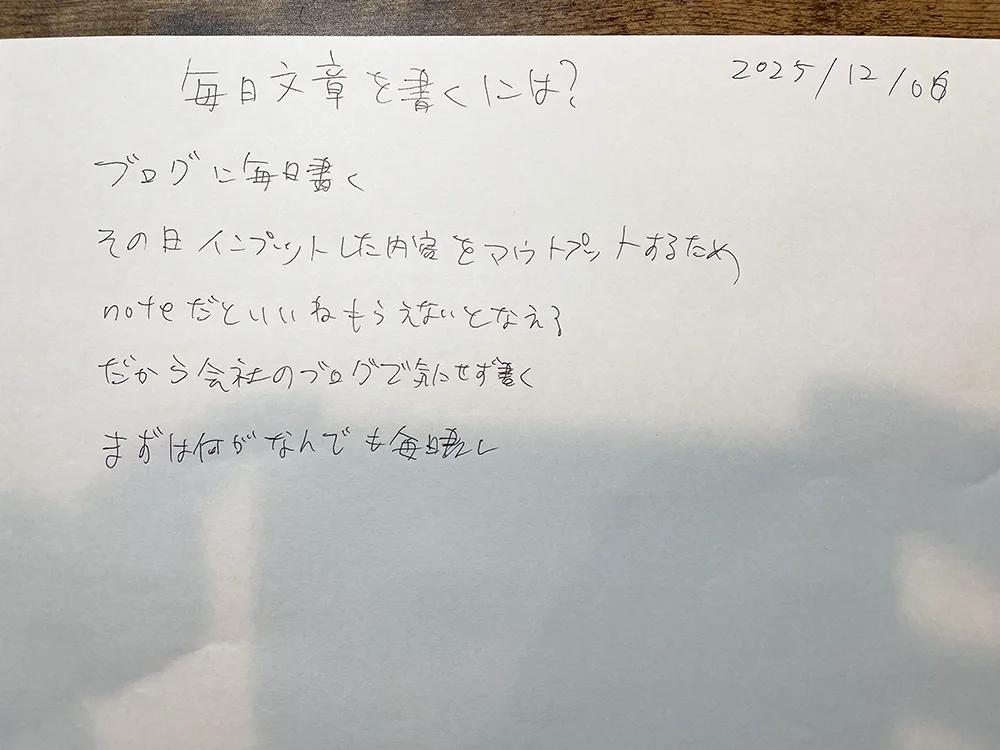 毎日文章を書くには?
2025/12/08
ブログに毎日書く
その日インプットした内容をアウトプットするため
noteだといいねもらえないとなえる
だから会社のブログで気にせず書く
まずは何がなんでも毎日書く